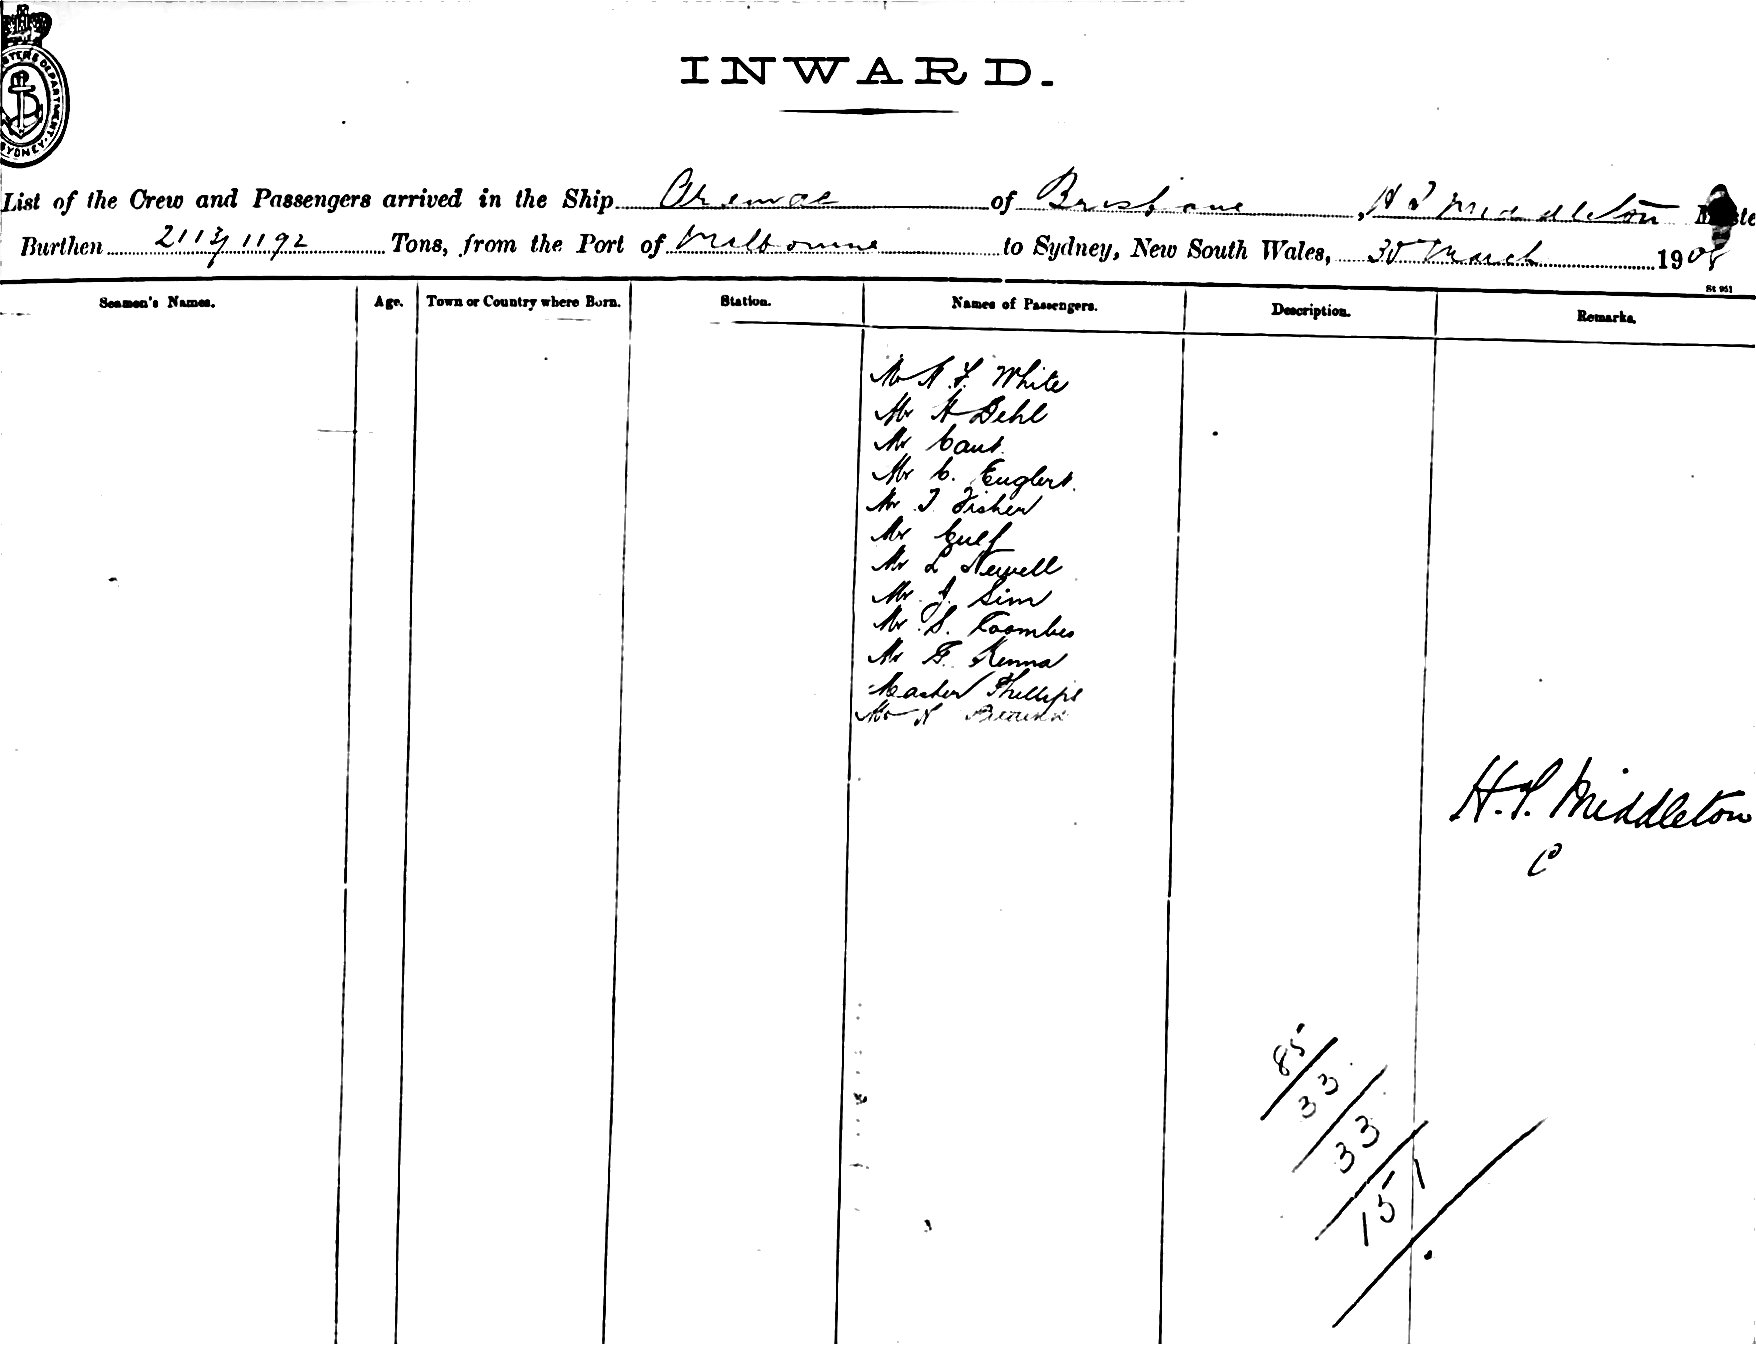 INWARD.
List of the Crew and Passengers arrived in the Ship Aramac of Brisbane, H T Middleton
Burthen 2113/1192 Tons, from the Port of Melbourne to Sydney, New South Wales, 30 March 1908
St 951
Seamen's Names. Age. Town or Country where Born. Station. Names of Passengers. Description. Remarks.
Mr H F. White
Mr H Dehl
Mr Cant
Mr C. Englert.
Mr T. Fisher
Mr
Mr L Newell
Mr J. Sim
Mr S. Toombes
Mr F. Kenna
Master Phillips
Mr N
H.T. Middleton
85
33
33
151